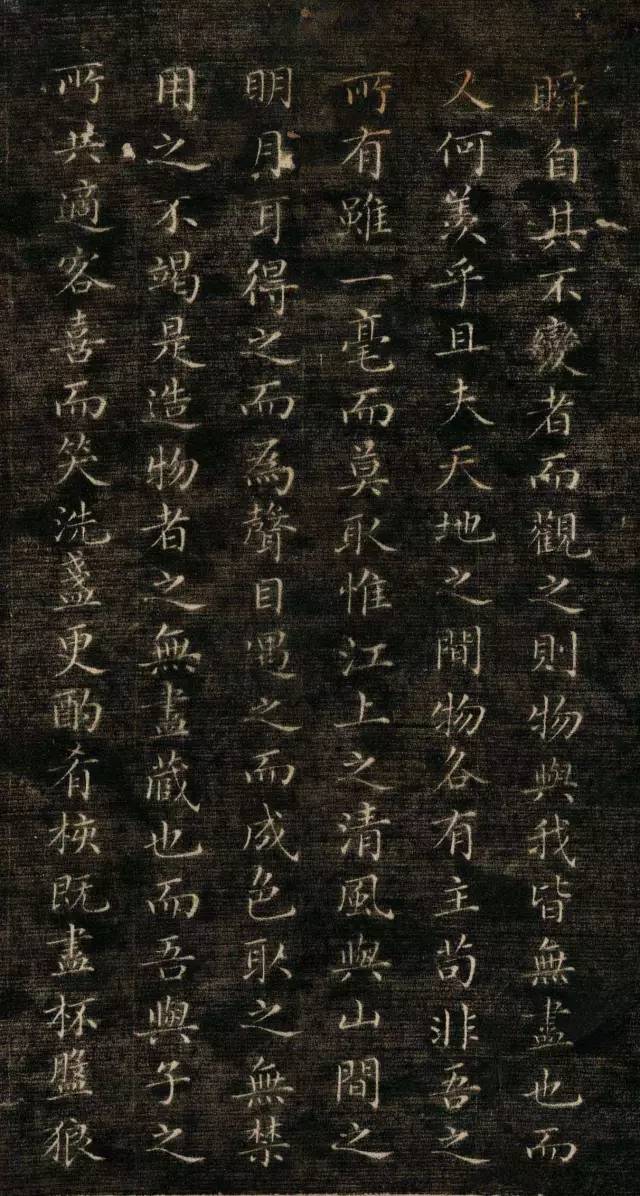 瞬自其不變者而觀之則物與我皆無盡也而
人何羨乎且夫天地之間物各有主苟非吾之
所有雖一毫而莫取惟江上之清風與山間之
明月耳得之而為聲目遇之而成色取之無禁
用之不竭是造物者之無盡藏也而吾與子之
所共適客喜而笑洗盞更酌肴核既盡杯盤狼